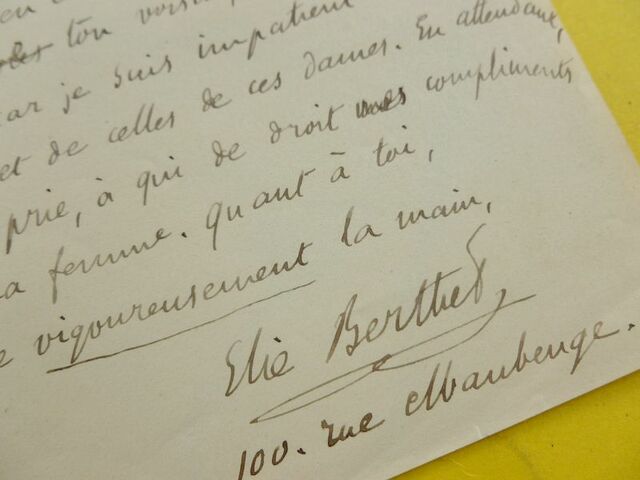 en
ton voisin,
car je suis impatient
et de celles de ces dames. En attendant,
prie, à qui de droit mes compliments
a femme. quant à toi,
e vigoureusement la main,
Elie Berthet,
100. rue Maubeuge.